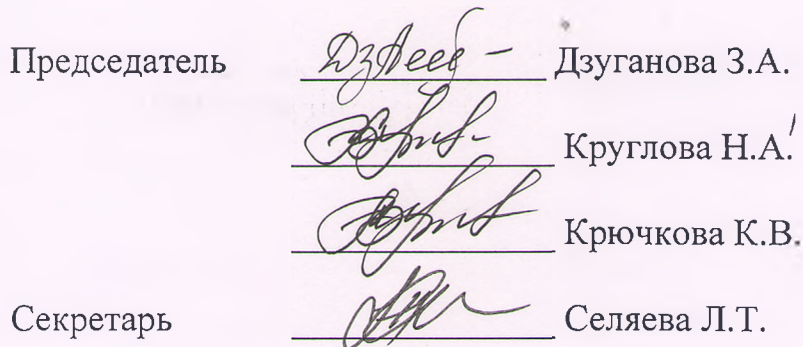 Председатель Дзуганова З.А.
Круглова Н.А.
Крючкова К.В.
Секретарь Селяева Л.Т.